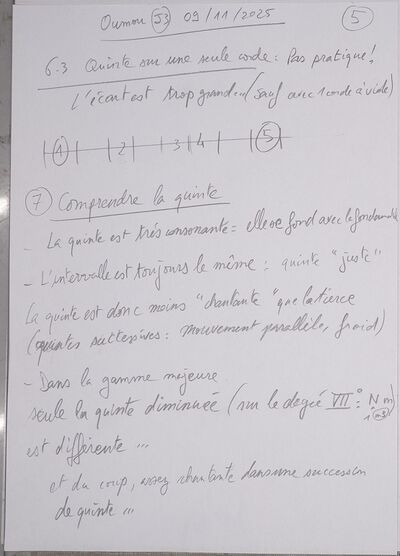 Oumou J3 09/11/2025 5
6.3 Quinte sur une seule corde : Pas pratique !
L'écart est trop grand... (sauf avec 1 corde à vide)
1 2 3 4 5
7 Comprendre la quinte
- La quinte est très consonante = elle se fond avec la fondamentale
- L'intervalle est toujours le même : quinte "juste"
La quinte est donc moins "chantante" que la tierce
(quintes successives : mouvement parallèle, froid)
- Dans la gamme majeure
seule la quinte diminuée (sur le degré VII°
est différente ...
et du coup, assez chantante dans une succession
de quinte ...